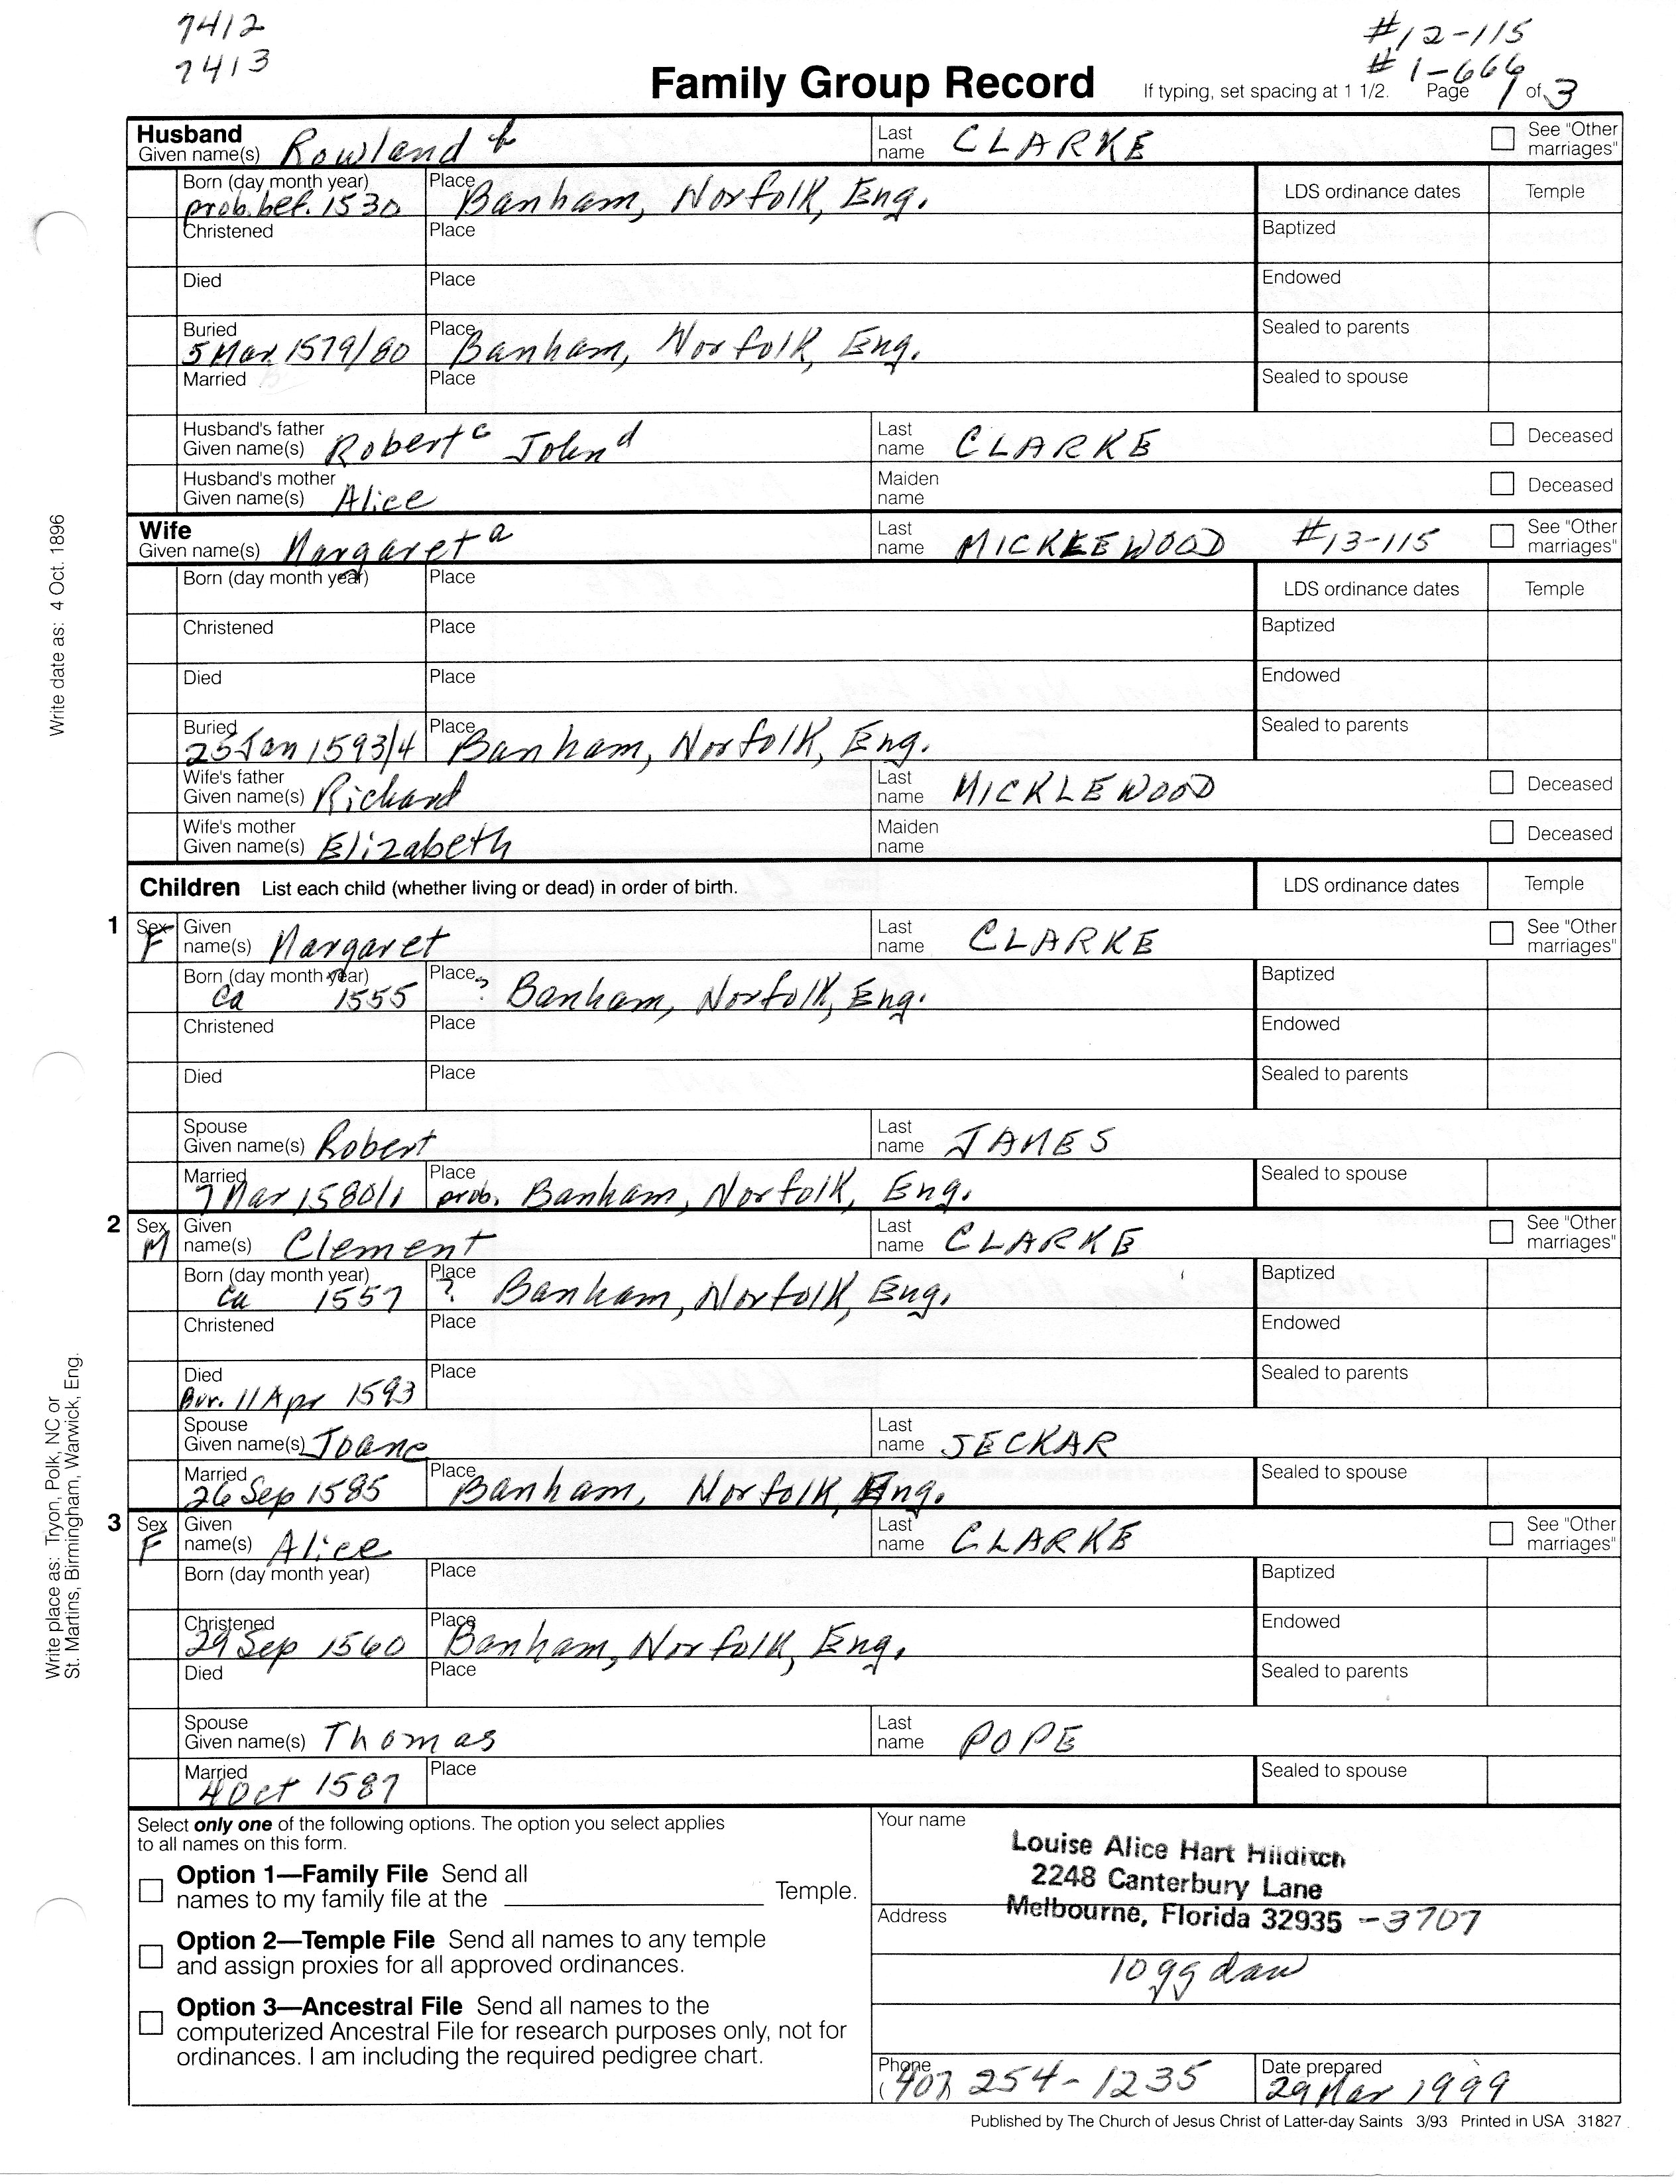 7412
7413
#12-115
#1-666
Family Group Record
If typing, set spacing at 1 1/2. Page 1 of 3
Husband
Given name(s) Rowland b Last name CLARKE See "Other marriages"
Born (day month year) prob. bef. 1530 Place Banham, Norfolk, Eng. LDS ordinance dates Temple
Christened Place Baptized
Died Place Endowed
Buried 5 Mar 1579/80 Place Banham, Norfolk, Eng. Sealed to parents
Married Place Sealed to spouse
Husband's father Given name(s) Robert c John d Last name CLARKE Deceased
Husband's mother Given name(s) Alice Maiden name Deceased
Wife
Given name(s) Margaret a Last name MICKLEWOOD #13-115 See "Other marriages"
Born (day month year) Place LDS ordinance dates Temple
Christened Place Baptized
Died Place Endowed
Buried 25 Jan 1593/4 Place Banham, Norfolk, Eng. Sealed to parents
Wife's father Given name(s) Richard Last name MICKLEWOOD Deceased
Wife's mother Given name(s) Elizabeth Maiden name Deceased
Children List each child (whether living or dead) in order of birth. LDS ordinance dates Temple
1 Sex F Given name(s) Margaret Last name CLARKE See "Other marriages"
Born (day month year) Ca 1555 Place ? Banham, Norfolk, Eng. Baptized
Christened Place Endowed
Died Place Sealed to parents
Spouse Given name(s) Robert Last name JAMES
Married 7 Mar 1580/1 Place prob. Banham, Norfolk, Eng. Sealed to spouse
2 Sex M Given name(s) Clement Last name CLARKE See "Other marriages"
Born (day month year) Ca 1557 Place ? Banham, Norfolk, Eng. Baptized
Christened Place Endowed
Died Bur. 11 Apr 1593 Place Sealed to parents
Spouse Given name(s) Joane Last name JECKAR
Married 26 Sep 1585 Place Banham, Norfolk, Eng. Sealed to spouse
3 Sex F Given name(s) Alice Last name CLARKE See "Other marriages"
Born (day month year) Place Baptized
Christened 29 Sep 1560 Place Banham, Norfolk, Eng. Endowed
Died Place Sealed to parents
Spouse Given name(s) Thomas Last name POPE
Married 4 Oct 1587 Place Sealed to spouse
Select only one of the following options. The option you select applies
to all names on this form.
Option 1—Family File Send all
names to my family file at the Temple.
Option 2—Temple File Send all names to any temple
and assign proxies for all approved ordinances.
Option 3—Ancestral File Send all names to the
computerized Ancestral File for research purposes only, not for
ordinances. I am including the required pedigree chart.
Your name Louise Alice Hart Hilditch
2248 Canterbury Lane
Address Melbourne, Florida 32935 -3707
10 gg dau
Phone (407) 254-1235 Date prepared 29 Mar 1999
Published by The Church of Jesus Christ of Latter-day Saints 3/93 Printed in USA 31827
Write date as: 4 Oct. 1896
Write place as: Tryon, Polk, NC or
St. Martins, Birmingham, Warwick, Eng.